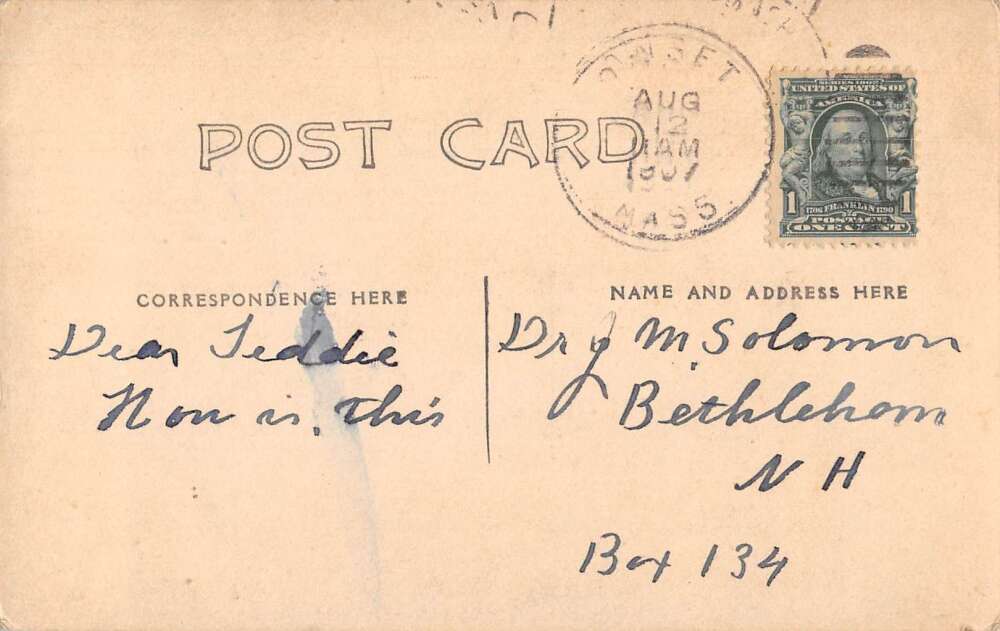 POST CARD
ONSET
AUG
12
AM
1907
MASS.
SERIES 1902
UNITED STATES OF
AMERICA
1 1706 FRANKLIN 1790 1
POSTAGE
ONE CENT
CORRESPONDENCE HERE
Dear Teddie
How is this
NAME AND ADDRESS HERE
Dr J M. Solomon
Bethlehem
N H
Box 134